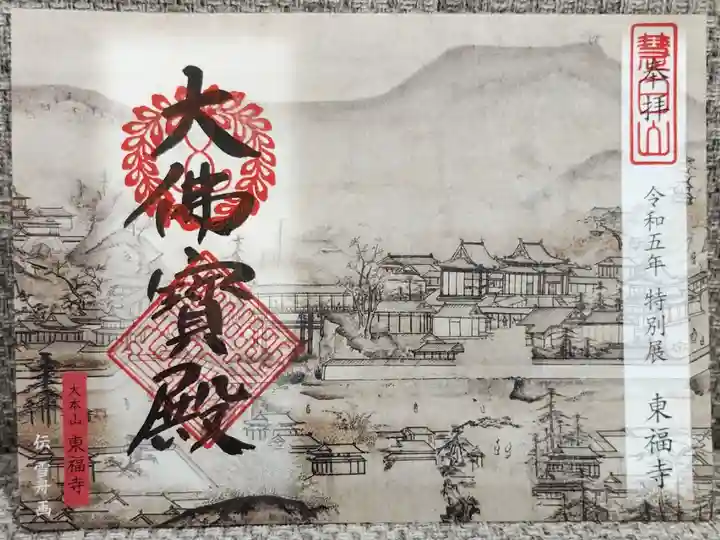 奉拝
慧日山
令和五年 特別展 東福寺
大佛寳殿
大本山 東福寺
伝 雪舟 画